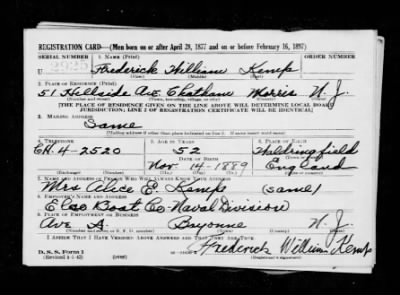 REGISTRATION CARD—(Men born on or after April 28, 1877 and on or before February 16, 1897)
SERIAL NUMBER 1. NAME (Print) ORDER NUMBER
U 2925 Frederick William Kemp
(First) (Middle) (Last)
2. PLACE OF RESIDENCE (Print)
51 Hillside Ave. Chatham Morris N. J.
(Number and street) (Town, township, village, or city) (County) (State)
[THE PLACE OF RESIDENCE GIVEN ON THE LINE ABOVE WILL DETERMINE LOCAL BOARD
JURISDICTION; LINE 2 OF REGISTRATION CERTIFICATE WILL BE IDENTICAL]
3. MAILING ADDRESS
Same
[Mailing address if other than place indicated on line 2. If same insert word same]
4. TELEPHONE 5. AGE IN YEARS 6. PLACE OF BIRTH
CH. 4-2520 52
DATE OF BIRTH
Nov 14-1889 England
(Exchange) (Number) (Mo.) (Day) (Yr.) (State or country)
7. NAME AND ADDRESS OF PERSON WHO WILL ALWAYS KNOW YOUR ADDRESS
Mrs Alice E. Kemp (same)
8. EMPLOYER'S NAME AND ADDRESS
Elco Boat Co. Naval Division
9. PLACE OF EMPLOYMENT OR BUSINESS
Ave A. Bayonne N. J.
(Number and street or R. F. D. number) (Town) (County) (State)
I AFFIRM THAT I HAVE VERIFIED ABOVE ANSWERS AND THAT THEY ARE TRUE.
Frederick William Kemp
D. S. S. Form 1
(Revised 4-1-42) (Registrant's signature)